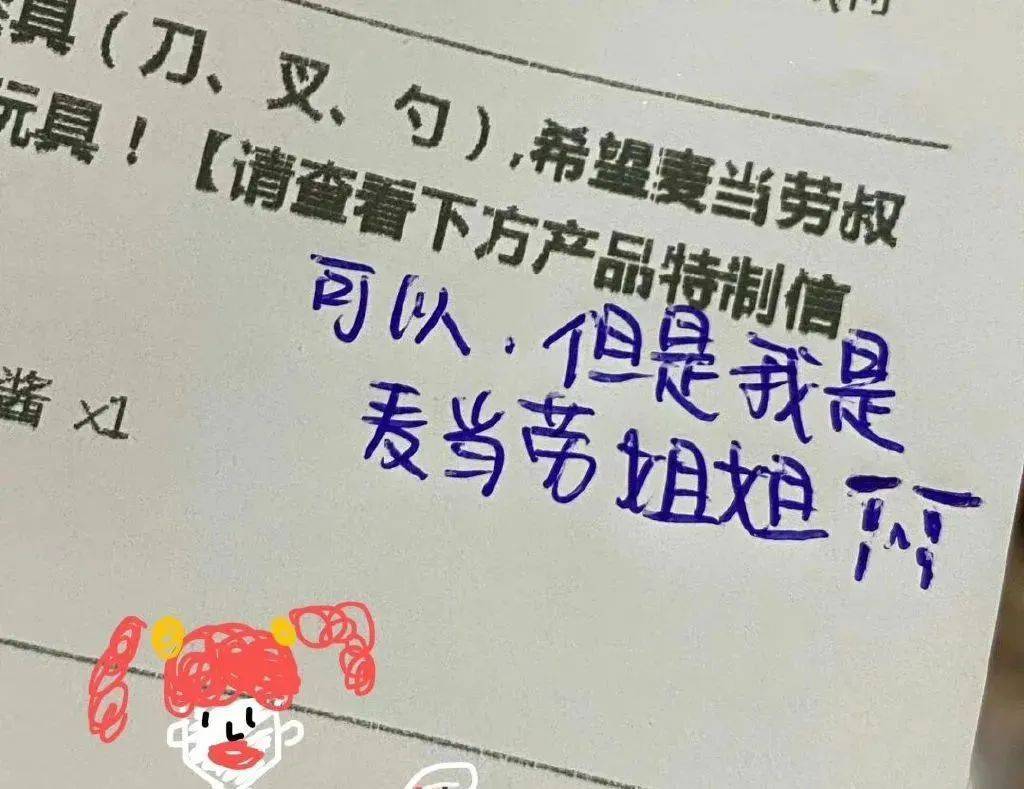 具（刀、叉、勺），希望麦当劳叔
玩具！【请查看下方产品特制信
可以，但是我是
麦当劳姐姐
酱 x1